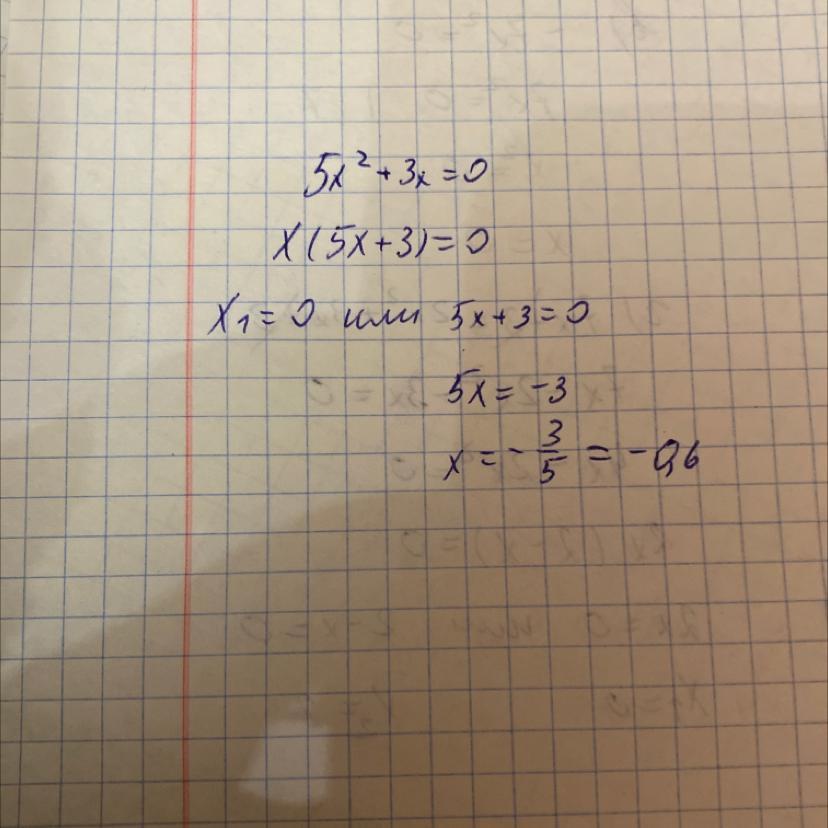 5x² + 3x = 0
x(5x + 3) = 0
x₁ = 0 или 5x + 3 = 0
5x = -3
x = -3/5 = -0,6